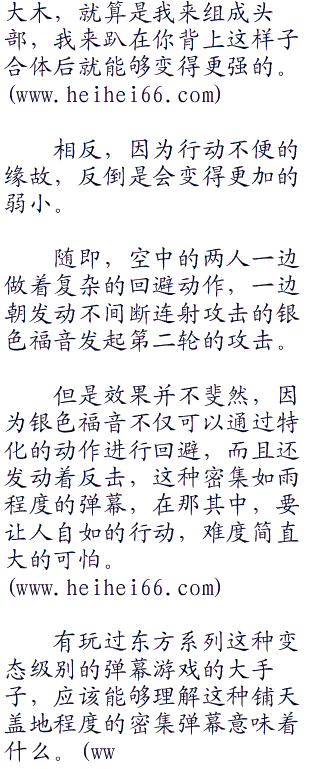 大木，就算是我来组成头
部，我来趴在你背上这样子
合体后就能够变得更强的。
(www.heihei66.com)
相反，因为行动不便的
缘故，反倒是会变得更加的
弱小。
随即，空中的两人一边
做着复杂的回避动作，一边
朝发动不间断连射攻击的银
色福音发起第二轮的攻击。
但是效果并不斐然，因
为银色福音不仅可以通过特
化的动作进行回避，而且还
发动着反击，这种密集如雨
程度的弹幕，在那其中，要
让人自如的行动，难度简直
大的可怕。
(www.heihei66.com)
有玩过东方系列这种变
态级别的弹幕游戏的大手
子，应该能够理解这种铺天
盖地程度的密集弹幕意味着
什么。(ww